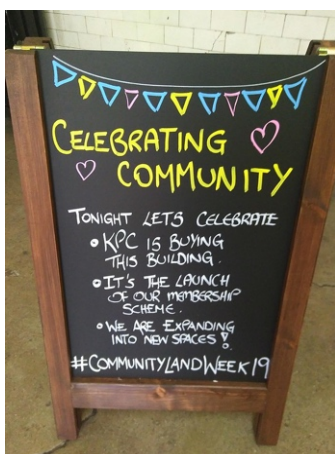 CELEBRATING
COMMUNITY
TONIGHT LETS CELEBRATE
• KPC IS BUYING
THIS BUILDING.
• IT'S THE LAUNCH
OF OUR MEMBERSHIP
SCHEME.
• WE ARE EXPANDING
INTO NEW SPACES!
#COMMUNITYLANDWEEK19